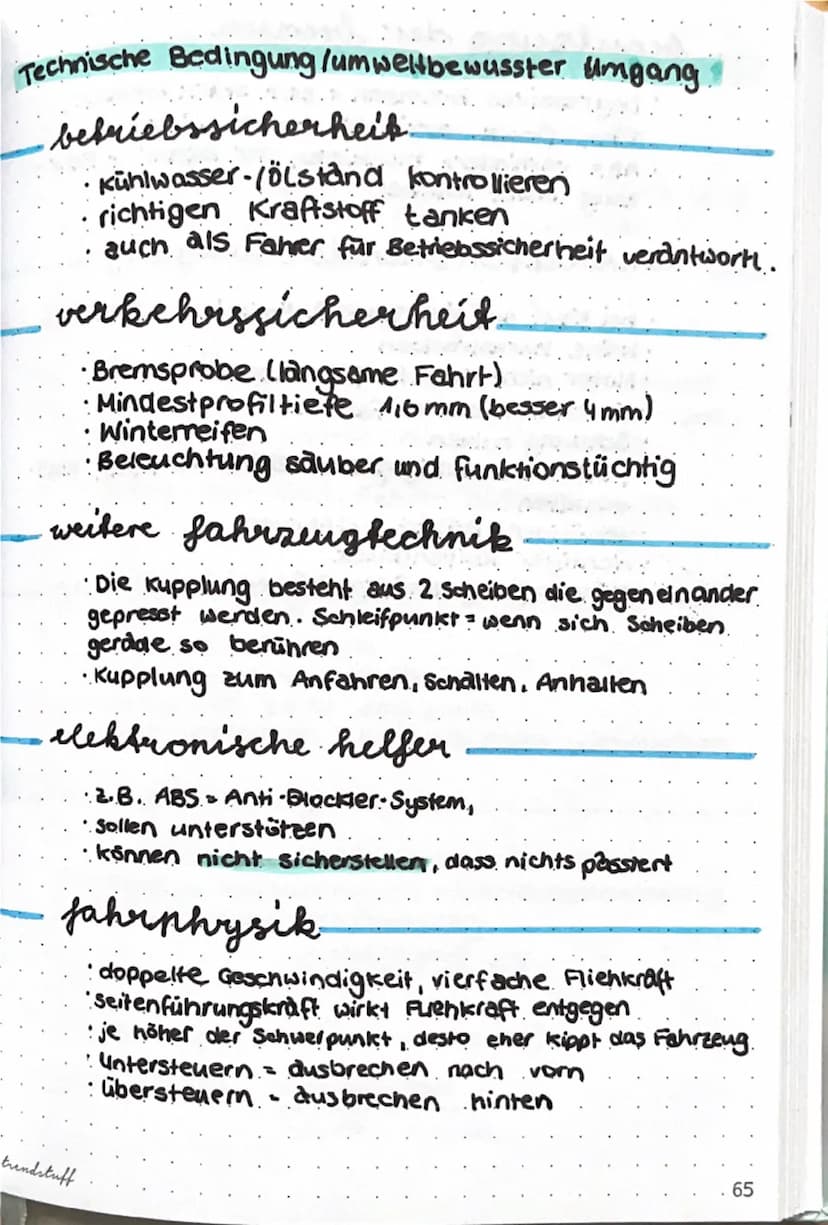 Technische Bedingung/umweltbewusster Umgang
betriebssicherheit
· Kühlwasser-/Ölstand kontrollieren
· richtigen Kraftstoff tanken
· auch als Fahrer für Betriebssicherheit verantwortl.
verkehrssicherheit
· Bremsprobe (langsame Fahrt)
· Mindestprofiltiefe 1,6 mm (besser 4mm)
· Winterreifen
· Beleuchtung sauber und funktionstüchtig
weitere fahrzeugtechnik
· Die Kupplung besteht aus 2 Scheiben die gegeneinander
gepresst werden. Schleifpunkt = wenn sich Scheiben
gerade so berühren
· Kupplung zum Anfahren, Schalten, Anhalten
elektronische helfer
· z.B. ABS = Anti-Blockier-System,
· sollen unterstützen
· können nicht sicherstellen, dass nichts passiert
fahrphysik
· doppelte Geschwindigkeit, vierfache Fliehkraft
· Seitenführungskraft wirkt Fliehkraft entgegen
· je höher der Schwerpunkt, desto eher kippt das Fahrzeug
· Untersteuern = ausbrechen nach vorn
· Übersteuern = ausbrechen hinten
trendstuff
65